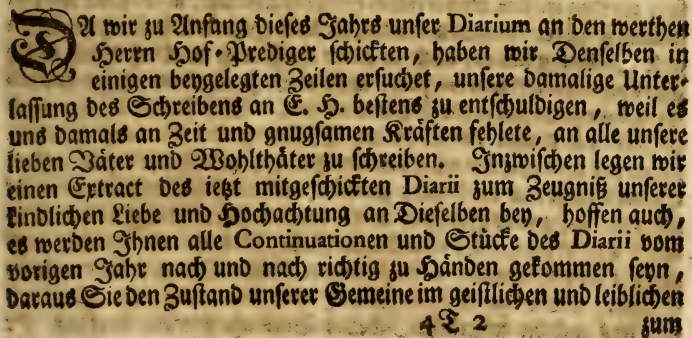 DA wir zu Anfang dieses Jahrs unser Diarium an den werthen
Herrn Hof-Prediger schickten, haben wir Denselben in
einigen beygelegten Zeilen ersuchet, unsere damalige Unter-
lassung des Schreibens an E. H. bestens zu entschuldigen, weil es
uns damals an Zeit und gnugsamen Kräften fehlete, an alle unsere
lieben Väter und Wohlthäter zu schreiben. Inzwischen legen wir
einen Extract des ietzt mitgeschickten Diarii zum Zeugniß unserer
kindlichen Liebe und Hochachtung an Dieselben bey, hoffen auch,
es werden Ihnen alle Continuationen und Stücke des Diarii vom
vorigen Jahr nach und nach richtig zu Händen gekommen seyn,
daraus Sie den Zustand unserer Gemeine im geistlichen und leiblichen
4 T 2 zum